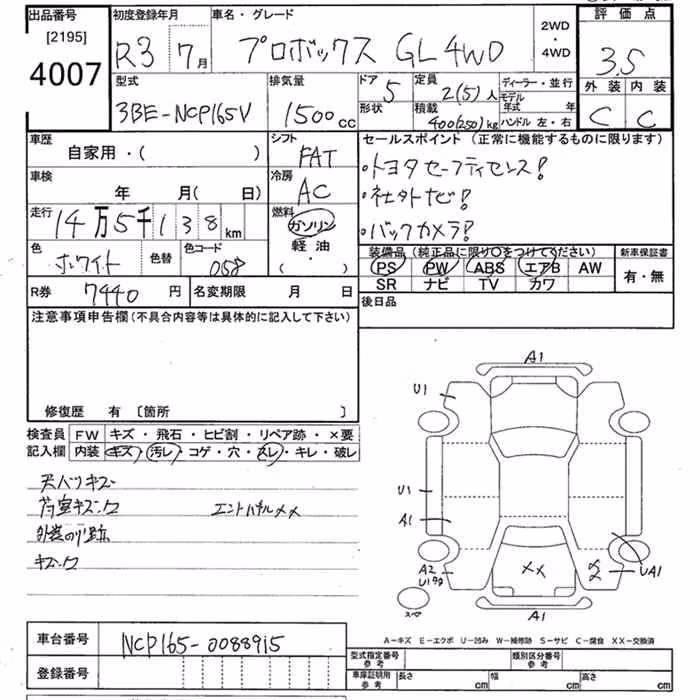 出品番号 初度登録年月 車名・グレード 2WD・4WD 評価点
[2195]
4007
R3 7月
プロボックス GL 4WD
3.5
型式 排気量 ドア 定員 ディーラー・並行 外装 内装
3BE-NCP165V 1500cc 5 2(5)人 モデル年式 年 C C
形状 積載 400(250)kg ハンドル 左・右
車歴 シフト セールスポイント (正常に機能するものに限ります)
自家用・( ) FAT
・トヨタセーフティセンス!
車検 冷房
年 月( 日) AC
・社外ナビ!
走行 燃料
14万5千138km ガソリン・軽油・( )
・バックカメラ!
色 色替 色コード
ホワイト 058
装備品(純正品に限り○をつけてください) 新車保証書
PS PW ABS エアB AW 有・無
SR ナビ TV カワ
R券 7440円 名変期限 月 日
後日品
注意事項申告欄(不具合内容等は具体的に記入して下さい)
修復歴 有 〔箇所 〕
検査員 FW キズ・飛石・ヒビ割・リペア跡・×要
記入欄 内装 キズ・汚レ・コゲ・穴・スレ・キレ・破レ
天バリキズ
荷室キズ エンドパネル××
キズ
A1
U1
U1
A1
A2
U1
××
UA1
スペア
A1
A-キズ E-エクボ U-凹み W-補修跡 S-サビ C-腐食 XX-交換済
車台番号 NCP165-0088915
登録番号
型式指定番号 参考 類別区分番号 参考
車庫証明用 参考 長さ cm 幅 cm 高さ cm